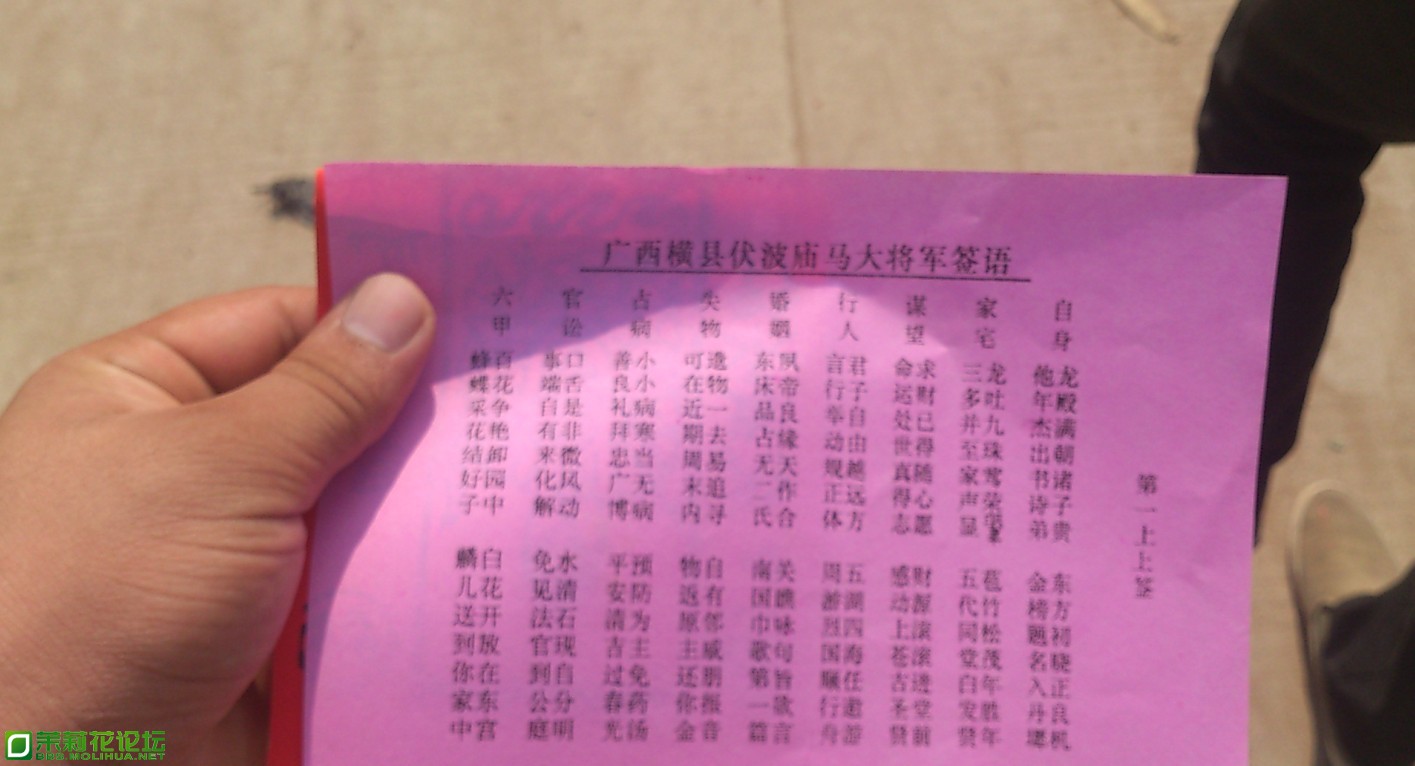 广西横县伏波庙马大将军签语
第一上上签
自身
龙殿满朝诸子贵 东方初晓正良机
他年杰出书诗弟 金榜题名入丹墀
家宅
龙吐九珠莺荣 苞竹松茂年胜年
三多并至家声显 五代同堂白发贤
谋望
求财已得随心愿 财源滚滚进堂前
命运处世真得志 感动上苍古圣贤
行人
君子自由越远方 五湖四海任遨游
言行举动规正体 周游烈国顺行舟
婚姻
夙帝良缘天作合 关瞧咏句旨欲言
东床品占无二氏 南国巾歌第一篇
失物
遗物一去易追寻 自有邻威朋振音
可在近期周末内 物返原主还你金
占病
小小病寒当无病 预防为主免药汤
善良礼拜忠广博 平安清吉过春光
官讼
口舌是非微风动 水清石现自分明
事端自有来化解 免见法官到公庭
六甲
百花争艳卸园中 白花开放在东宫
蜂蝶采花结好子 麟儿送到你家中
茉莉花论坛
BBS.MOLIHUA.NET